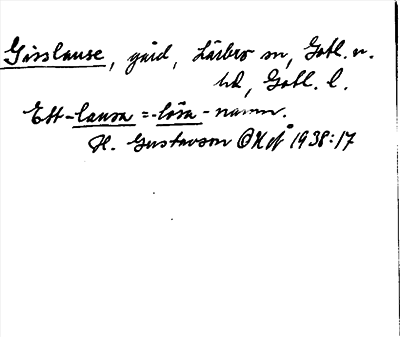 Gisslause, gård, Lärbro sn, Gotl. n.
hd, Gotl. l.
Ett -lausa = -lösa - namn.
H. Gustavson 1938:17